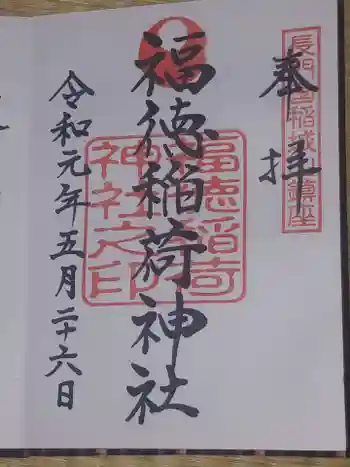 奉拝
長門國稲城山鎮座
福徳稲荷神社
福徳稲荷
神社之印
令和元年五月二十六日